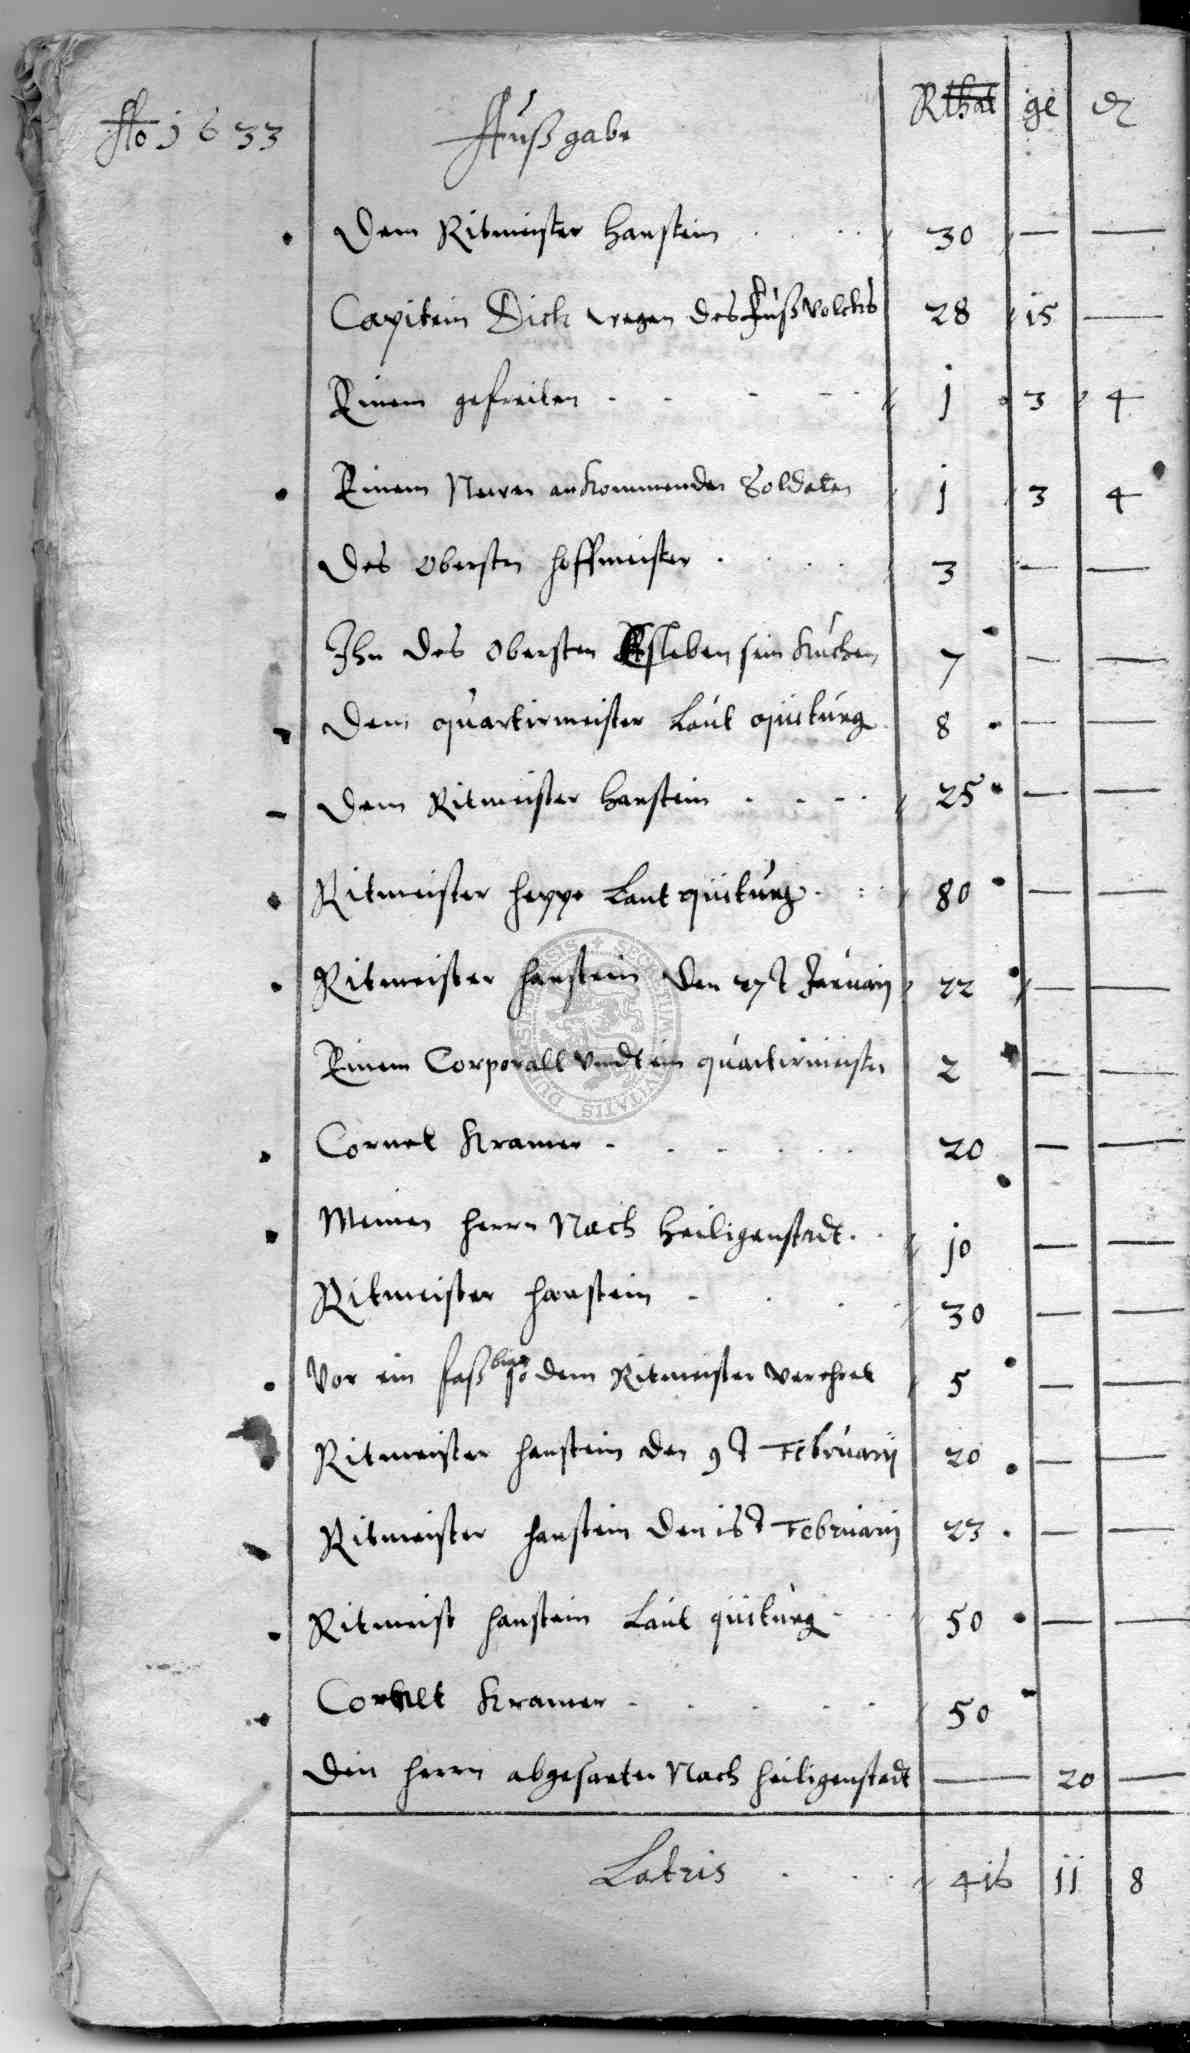 Ao 1633 Außgabe Rthal gl ₰
Dem Ritmeister Hanstein 30 — —
Capitein Dick wegen des fußvolcks 28 15 —
Einem gefreiten 1 3 4
Einem Newen ankommenden Soldaten 1 3 4
Des Obersten hoffmeister 3 — —
Ihn des Obersten sein Kuchen 7 — —
Dem quartirmeister Laut quitung 8 — —
Dem Ritmeister Hanstein 25 — —
Ritmeister heppe Laut quitung 80 — —
Ritmeister hanstein den 27t Januarij 22 — —
Einem Corporall Undt ein quartirmeister 2 — —
Cornet Kramer 20 — —
Meinen herrn Nach Heiligenstadt 10 — —
Ritmeister hanstein 30 — —
Vor ein faß bier so dem Ritmeister verehret 5 — —
Ritmeister hanstein den 9t Februarij 20 — —
Ritmeister hanstein den 16t Februarij 23 — —
Ritmeist hanstein Laut quitung 50 — —
Cornet Kramer 50
Den herrn abgesanten Nach heiligenstadt — 20 —
Latris 416 11 8